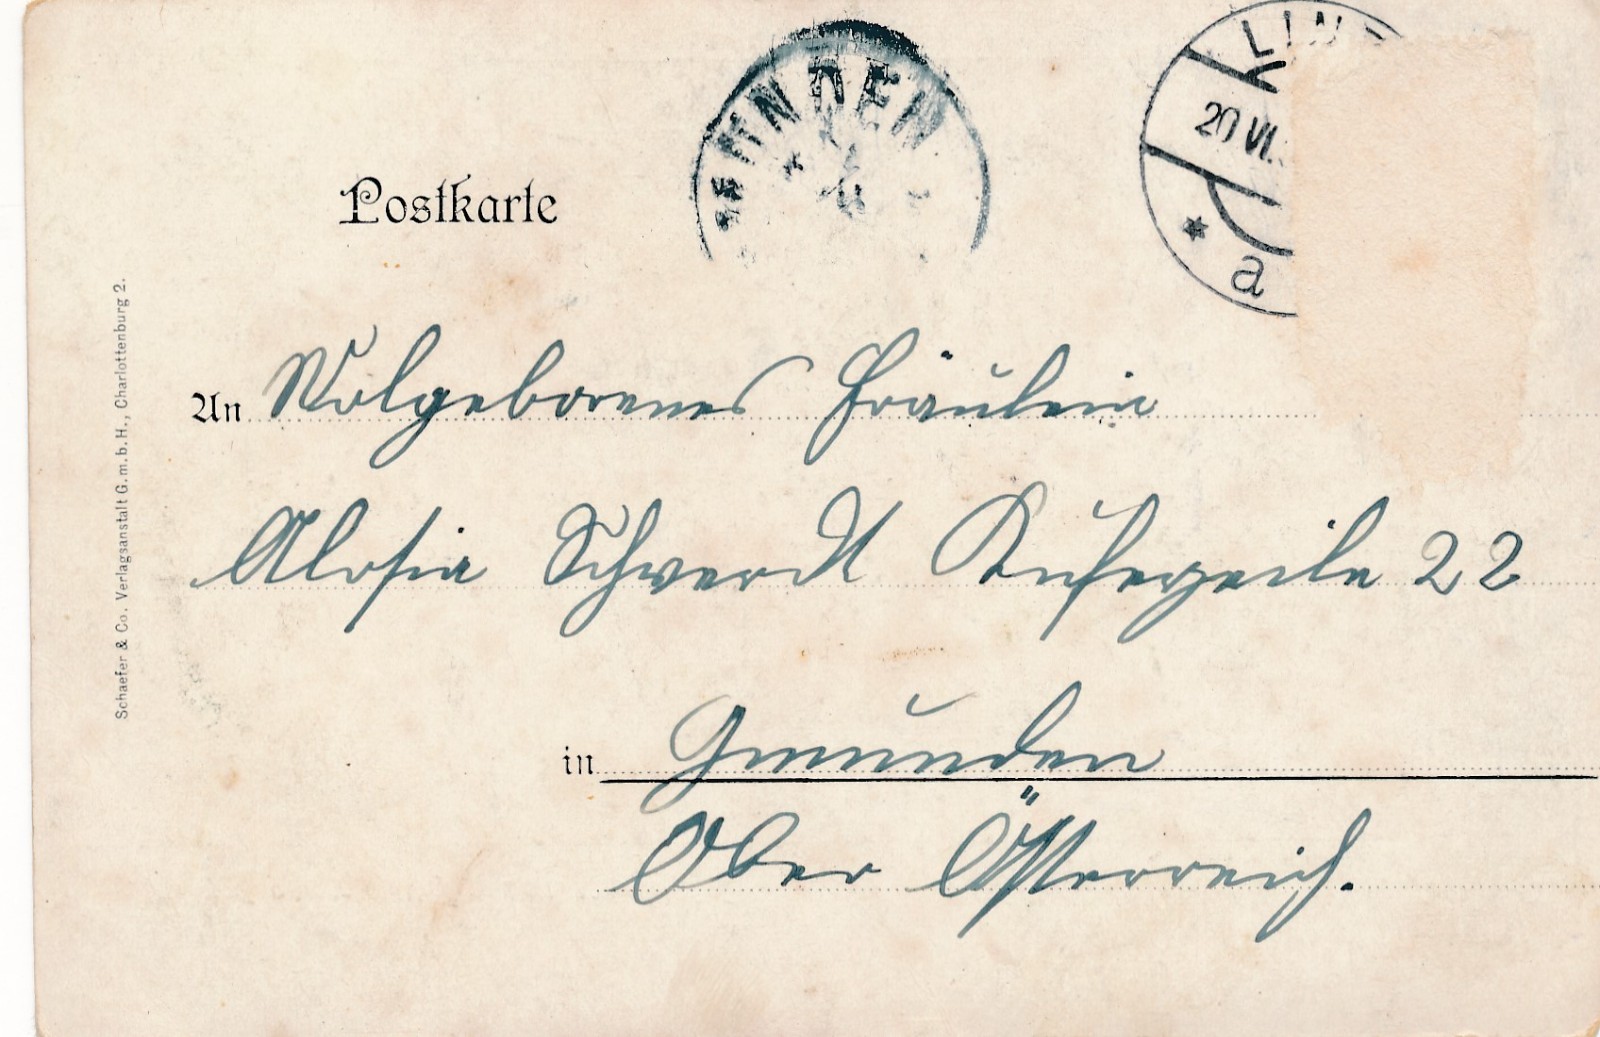 LIN
20 VI.
a
MUNDEN
Postkarte
An Wolgeborenes Fräulein
Alosia Schwerdt Kuferzeile 22
in Gmunden
Ober Österreich.
Schaefer & Co. Verlagsanstalt G.m.b.H., Charlottenburg 2.